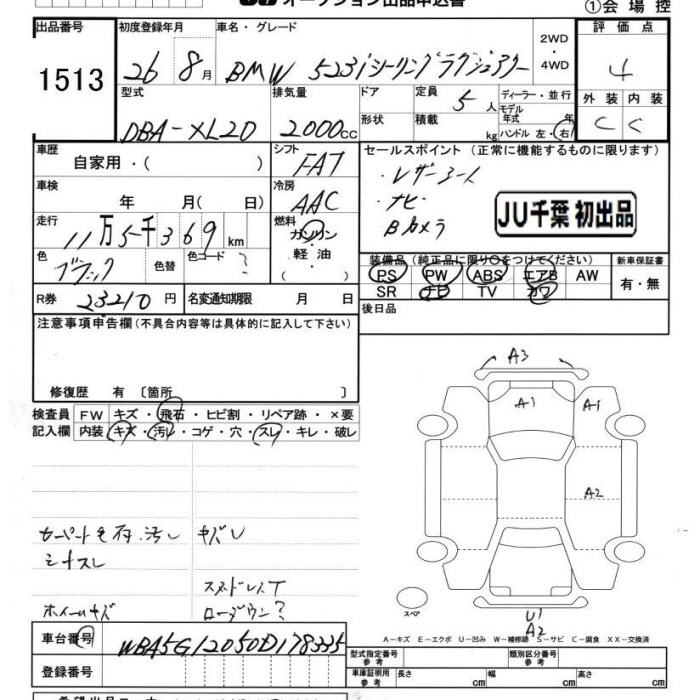 オークション出品申込書
①会場控
出品番号 初度登録年月 車名・グレード 2WD・4WD 評価点
1513 26 8月 BMW 523i 4
型式 排気量 ドア 定員 5人 ディーラー・並行 外装 内装
DBA-XL20 2000cc 形状 積載 kg モデル年式 年 ハンドル 左・右 C C
車歴 自家用・( ) シフト FAT セールスポイント (正常に機能するものに限ります)
車検 年 月( 日) 冷房 AAC
・ナビ
Bカメラ
JU千葉 初出品
走行 11万5千369km 燃料 ガソリン・軽油・( )
色 ブラック 色替 色コード ?
装備品 (純正品に限り○をつけてください) 新車保証書
PS PW ABS エアB AW 有・無
SR ナビ TV カワ
R券 23210円 名変通知期限 月 日 後日品
注意事項申告欄(不具合内容等は具体的に記入して下さい)
修復歴 有 〔箇所 〕
検査員 FW キズ・飛石・ヒビ割・リペア跡・×要
記入欄 内装 キズ・汚れ・コゲ・穴・スレ・キレ・破レ
A3
A1 A1
A2
スペア
U1
A2
シートスレ
ホイールキズ ローダウン?
A－キズ E－エクボ U－凹み W－補修跡 S－サビ C－腐食 XX－交換済
車台番号 WBA5G12050D178335
型式指定番号 参考 類別区分番号 参考
登録番号 車庫証明用 参考 長さ cm 幅 cm 高さ cm